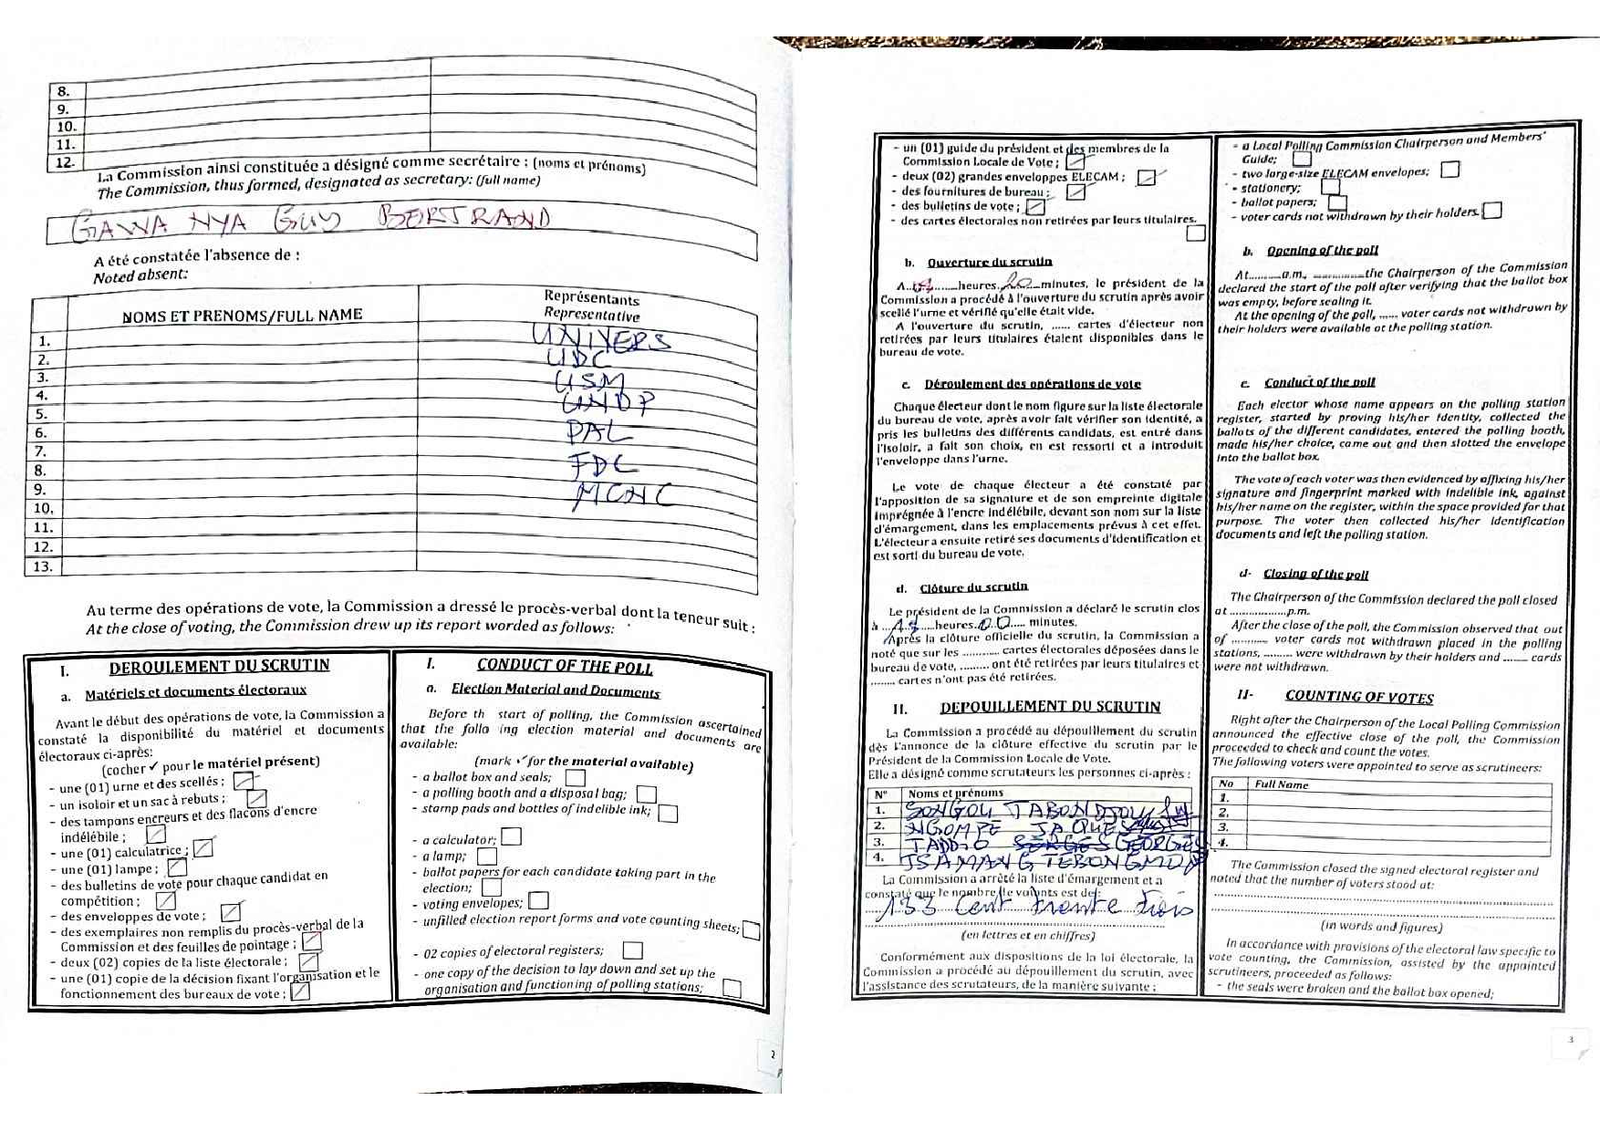 8.
9.
10.
11.
12.
La Commission ainsi constituée a désigné comme secrétaire : (noms et prénoms)
The Commission, thus formed, designated as secretary: (full name)
GAWA NYA GUY BERTRAND
A été constatée l'absence de :
Noted absent:
NOMS ET PRENOMS/FULL NAME
Représentants
Representative
1. UNIVERS
2. UDC
3. USM
4. UNDP
5.
6. PAL
7.
8. FDC
9. MCNC
10.
11.
12.
13.
Au terme des opérations de vote, la Commission a dressé le procès-verbal dont la teneur suit :
At the close of voting, the Commission drew up its report worded as follows:
I. DEROULEMENT DU SCRUTIN
a. Matériels et documents électoraux
Avant le début des opérations de vote, la Commission a
constaté la disponibilité du matériel et documents
électoraux ci-après:
(cocher ✓ pour le matériel présent)
- une (01) urne et des scellés ;
- un isoloir et un sac à rebuts ;
- des tampons encreurs et des flacons d'encre
indélébile ;
- une (01) calculatrice ;
- une (01) lampe ;
- des bulletins de vote pour chaque candidat en
compétition ;
- des enveloppes de vote ;
- des exemplaires non remplis du procès-verbal de la
Commission et des feuilles de pointage ;
- deux (02) copies de la liste électorale ;
- une (01) copie de la décision fixant l'organisation et le
fonctionnement des bureaux de vote ;
I. CONDUCT OF THE POLL
a. Election Material and Documents
Before th start of polling, the Commission ascertained
that the follo ing election material and documents are
available:
(mark ✓ for the material available)
- a ballot box and seals;
- a polling booth and a disposal bag;
- stamp pads and bottles of indelible ink;
- a calculator;
- a lamp;
- ballot papers for each candidate taking part in the
election;
- voting envelopes;
- unfilled election report forms and vote counting sheets;
- 02 copies of electoral registers;
- one copy of the decision to lay down and set up the
organisation and functioning of polling stations;
2
- un (01) guide du président et des membres de la
Commission Locale de Vote ;
- deux (02) grandes enveloppes ELECAM ;
- des fournitures de bureau ;
- des bulletins de vote ;
- des cartes électorales non retirées par leurs titulaires.
b. Ouverture du scrutin
A ........heures 20 minutes, le président de la
Commission a procédé à l'ouverture du scrutin après avoir
scellé l'urne et vérifié qu'elle était vide.
A l'ouverture du scrutin, ...... cartes d'électeur non
retirées par leurs titulaires étaient disponibles dans le
bureau de vote.
c. Déroulement des opérations de vote
Chaque électeur dont le nom figure sur la liste électorale
du bureau de vote, après avoir fait vérifier son identité, a
pris les bulletins des différents candidats, est entré dans
l'isoloir, a fait son choix, en est ressorti et a introduit
l'enveloppe dans l'urne.
Le vote de chaque électeur a été constaté par
l'apposition de sa signature et de son empreinte digitale
imprégnée à l'encre indélébile, devant son nom sur la liste
d'émargement, dans les emplacements prévus à cet effet.
L'électeur a ensuite retiré ses documents d'identification et
est sorti du bureau de vote.
d. Clôture du scrutin
Le président de la Commission a déclaré le scrutin clos
à ........heures 00 minutes.
Après la clôture officielle du scrutin, la Commission a
noté que sur les ........... cartes électorales déposées dans le
bureau de vote, ......... ont été retirées par leurs titulaires et
........ cartes n'ont pas été retirées.
II. DEPOUILLEMENT DU SCRUTIN
La Commission a procédé au dépouillement du scrutin
dès l'annonce de la clôture effective du scrutin par le
Président de la Commission Locale de Vote.
Elle a désigné comme scrutateurs les personnes ci-après :
N° Noms et prénoms
1. SONGOU TABONDJOU
2. NGOMPE JAQUES
3. TADDJO GEORGES
4. TSAMANG TEBONGMO
La Commission a arrêté la liste d'émargement et a
constaté que le nombre de votants est de:
133 Cent trente trois
(en lettres et en chiffres)
Conformément aux dispositions de la loi électorale, la
Commission a procédé au dépouillement du scrutin, avec
l'assistance des scrutateurs, de la manière suivante :
- a Local Polling Commission Chairperson and Members'
Guide;
- two large-size ELECAM envelopes;
- stationery;
- ballot papers;
- voter cards not withdrawn by their holders.
b. Opening of the poll
At..........a.m, ..............the Chairperson of the Commission
declared the start of the poll after verifying that the ballot box
was empty, before sealing it.
At the opening of the poll, ...... voter cards not withdrawn by
their holders were available at the polling station.
c. Conduct of the poll
Each elector whose name appears on the polling station
register, started by proving his/her identity, collected the
ballots of the different candidates, entered the polling booth,
made his/her choice, came out and then slotted the envelope
into the ballot box.
The vote of each voter was then evidenced by affixing his/her
signature and fingerprint marked with indelible ink, against
his/her name on the register, within the space provided for that
purpose. The voter then collected his/her identification
documents and left the polling station.
d- Closing of the poll
The Chairperson of the Commission declared the poll closed
at .................p.m.
After the close of the poll, the Commission observed that out
of .......... voter cards not withdrawn placed in the polling
stations, ......... were withdrawn by their holders and ....... cards
were not withdrawn.
II- COUNTING OF VOTES
Right after the Chairperson of the Local Polling Commission
announced the effective close of the poll, the Commission
proceeded to check and count the votes.
The following voters were appointed to serve as scrutineers:
No Full Name
1.
2.
3.
4.
The Commission closed the signed electoral register and
noted that the number of voters stood at:
(in words and figures)
In accordance with provisions of the electoral law specific to
vote counting, the Commission, assisted by the appointed
scrutineers, proceeded as follows:
- the seals were broken and the ballot box opened;
3